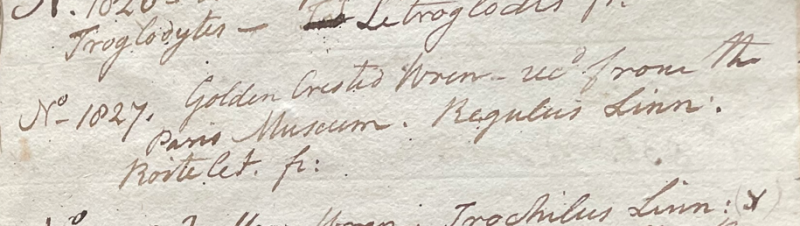 N. 1826
Troglodytes — Le troglodis fr.
No. 1827. Golden Crested Wren — recd from the
Paris Museum. Regulus Linn:.
Roitelet. fr:
Wren. Trochilus Linn: (x)